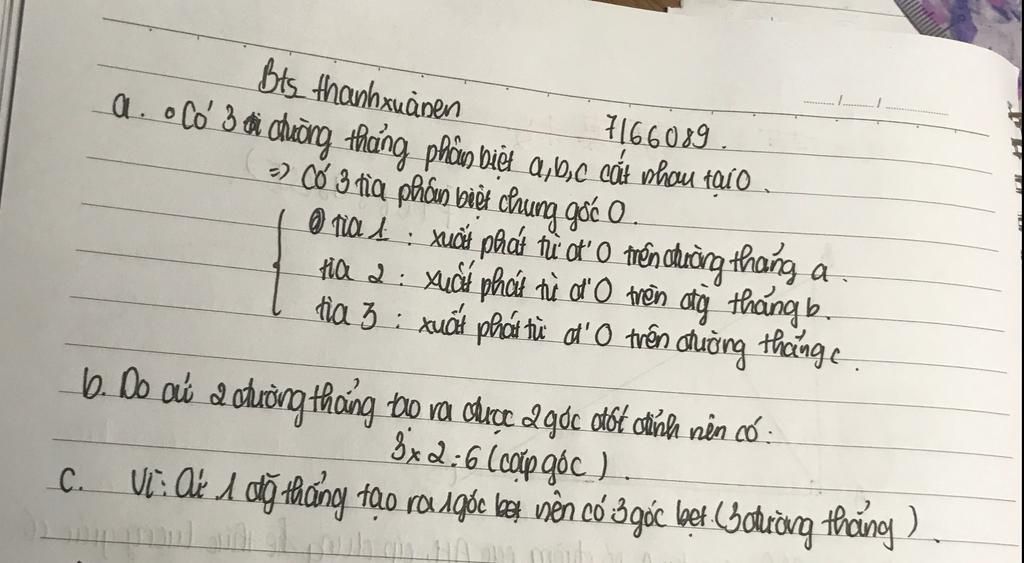 Bts thanhxuânen
7166089.
a. Có 3 đường thẳng phân biệt a,b,c cắt nhau tại O.
=> Có 3 tia phân biệt chung gốc O.
tia 1 : xuất phát từ đ' O trên đường thẳng a.
tia 2 : xuất phát từ đ' O trên đg̀ thẳng b.
tia 3 : xuất phát từ đ' O trên đường thẳng c.
b. Do cứ 2 đường thẳng tạo ra được 2 góc đối đỉnh nên có:
3 x 2 = 6 (cặp góc).
c. Vì: Cứ 1 đg̀ thẳng tạo ra 1 góc bẹt nên có 3 góc bẹt (3 đường thẳng).